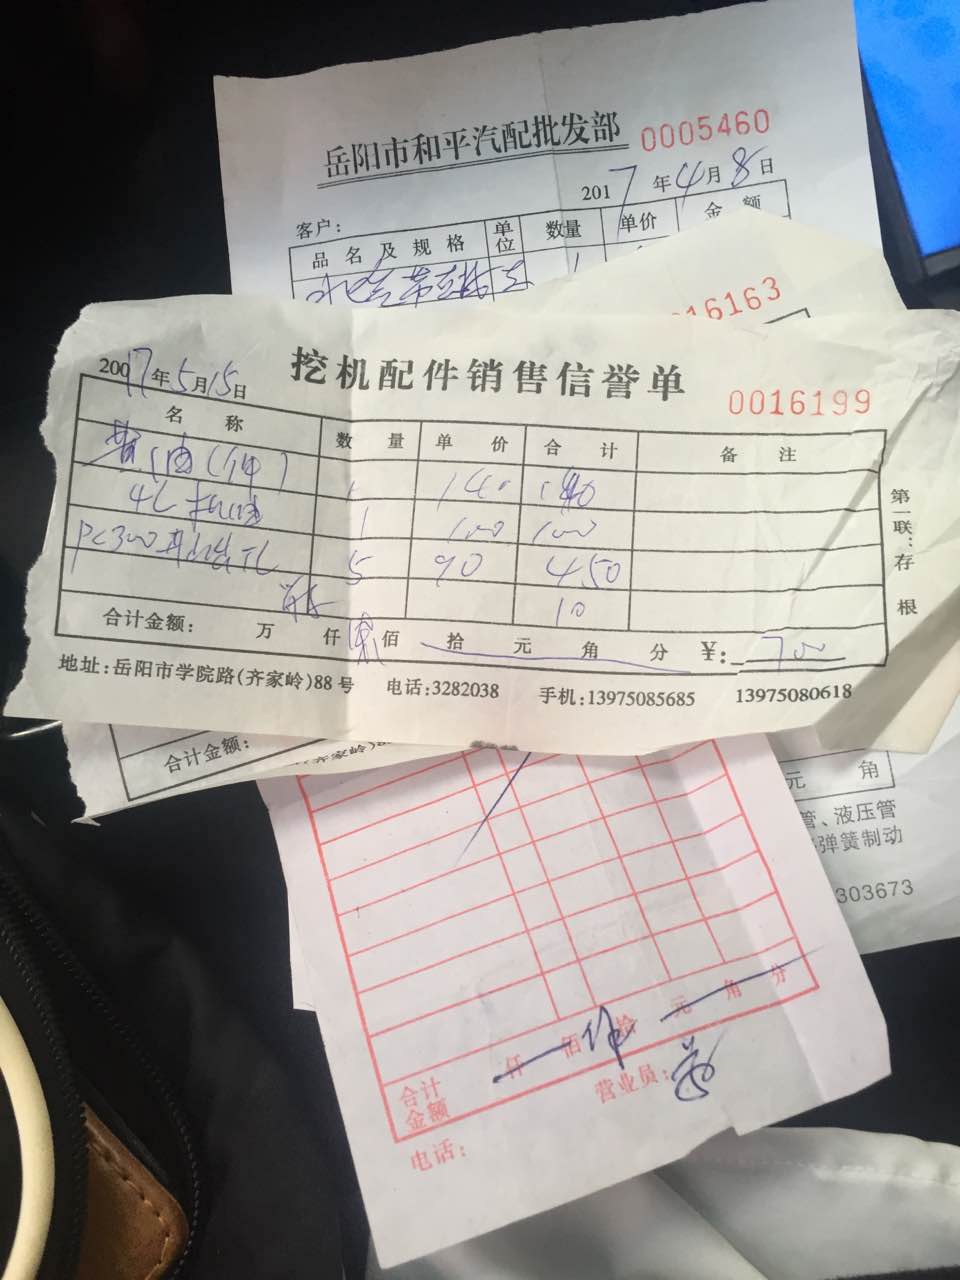 岳阳市和平汽配批发部 0005460
2017年4月8日
客户:
品名及规格 单位 数量 单价 金额
1
16163
挖机配件销售信誉单
2007年5月15日 0016199
名称 数量 单价 合计 备注
140 140
1 100 100
PC300 5 90 450
10
合计金额: 万 仟 佰 拾 元 角 分 ¥: 700
第一联:存根
地址:岳阳市学院路(齐家岭)88号 电话:3282038 手机:13975085685 13975080618
合计金额:
齐家岭)
元 角
管、液压管
弹簧制动
303673
合计金额 仟 佰 拾 元 角 分
营业员:
电话: